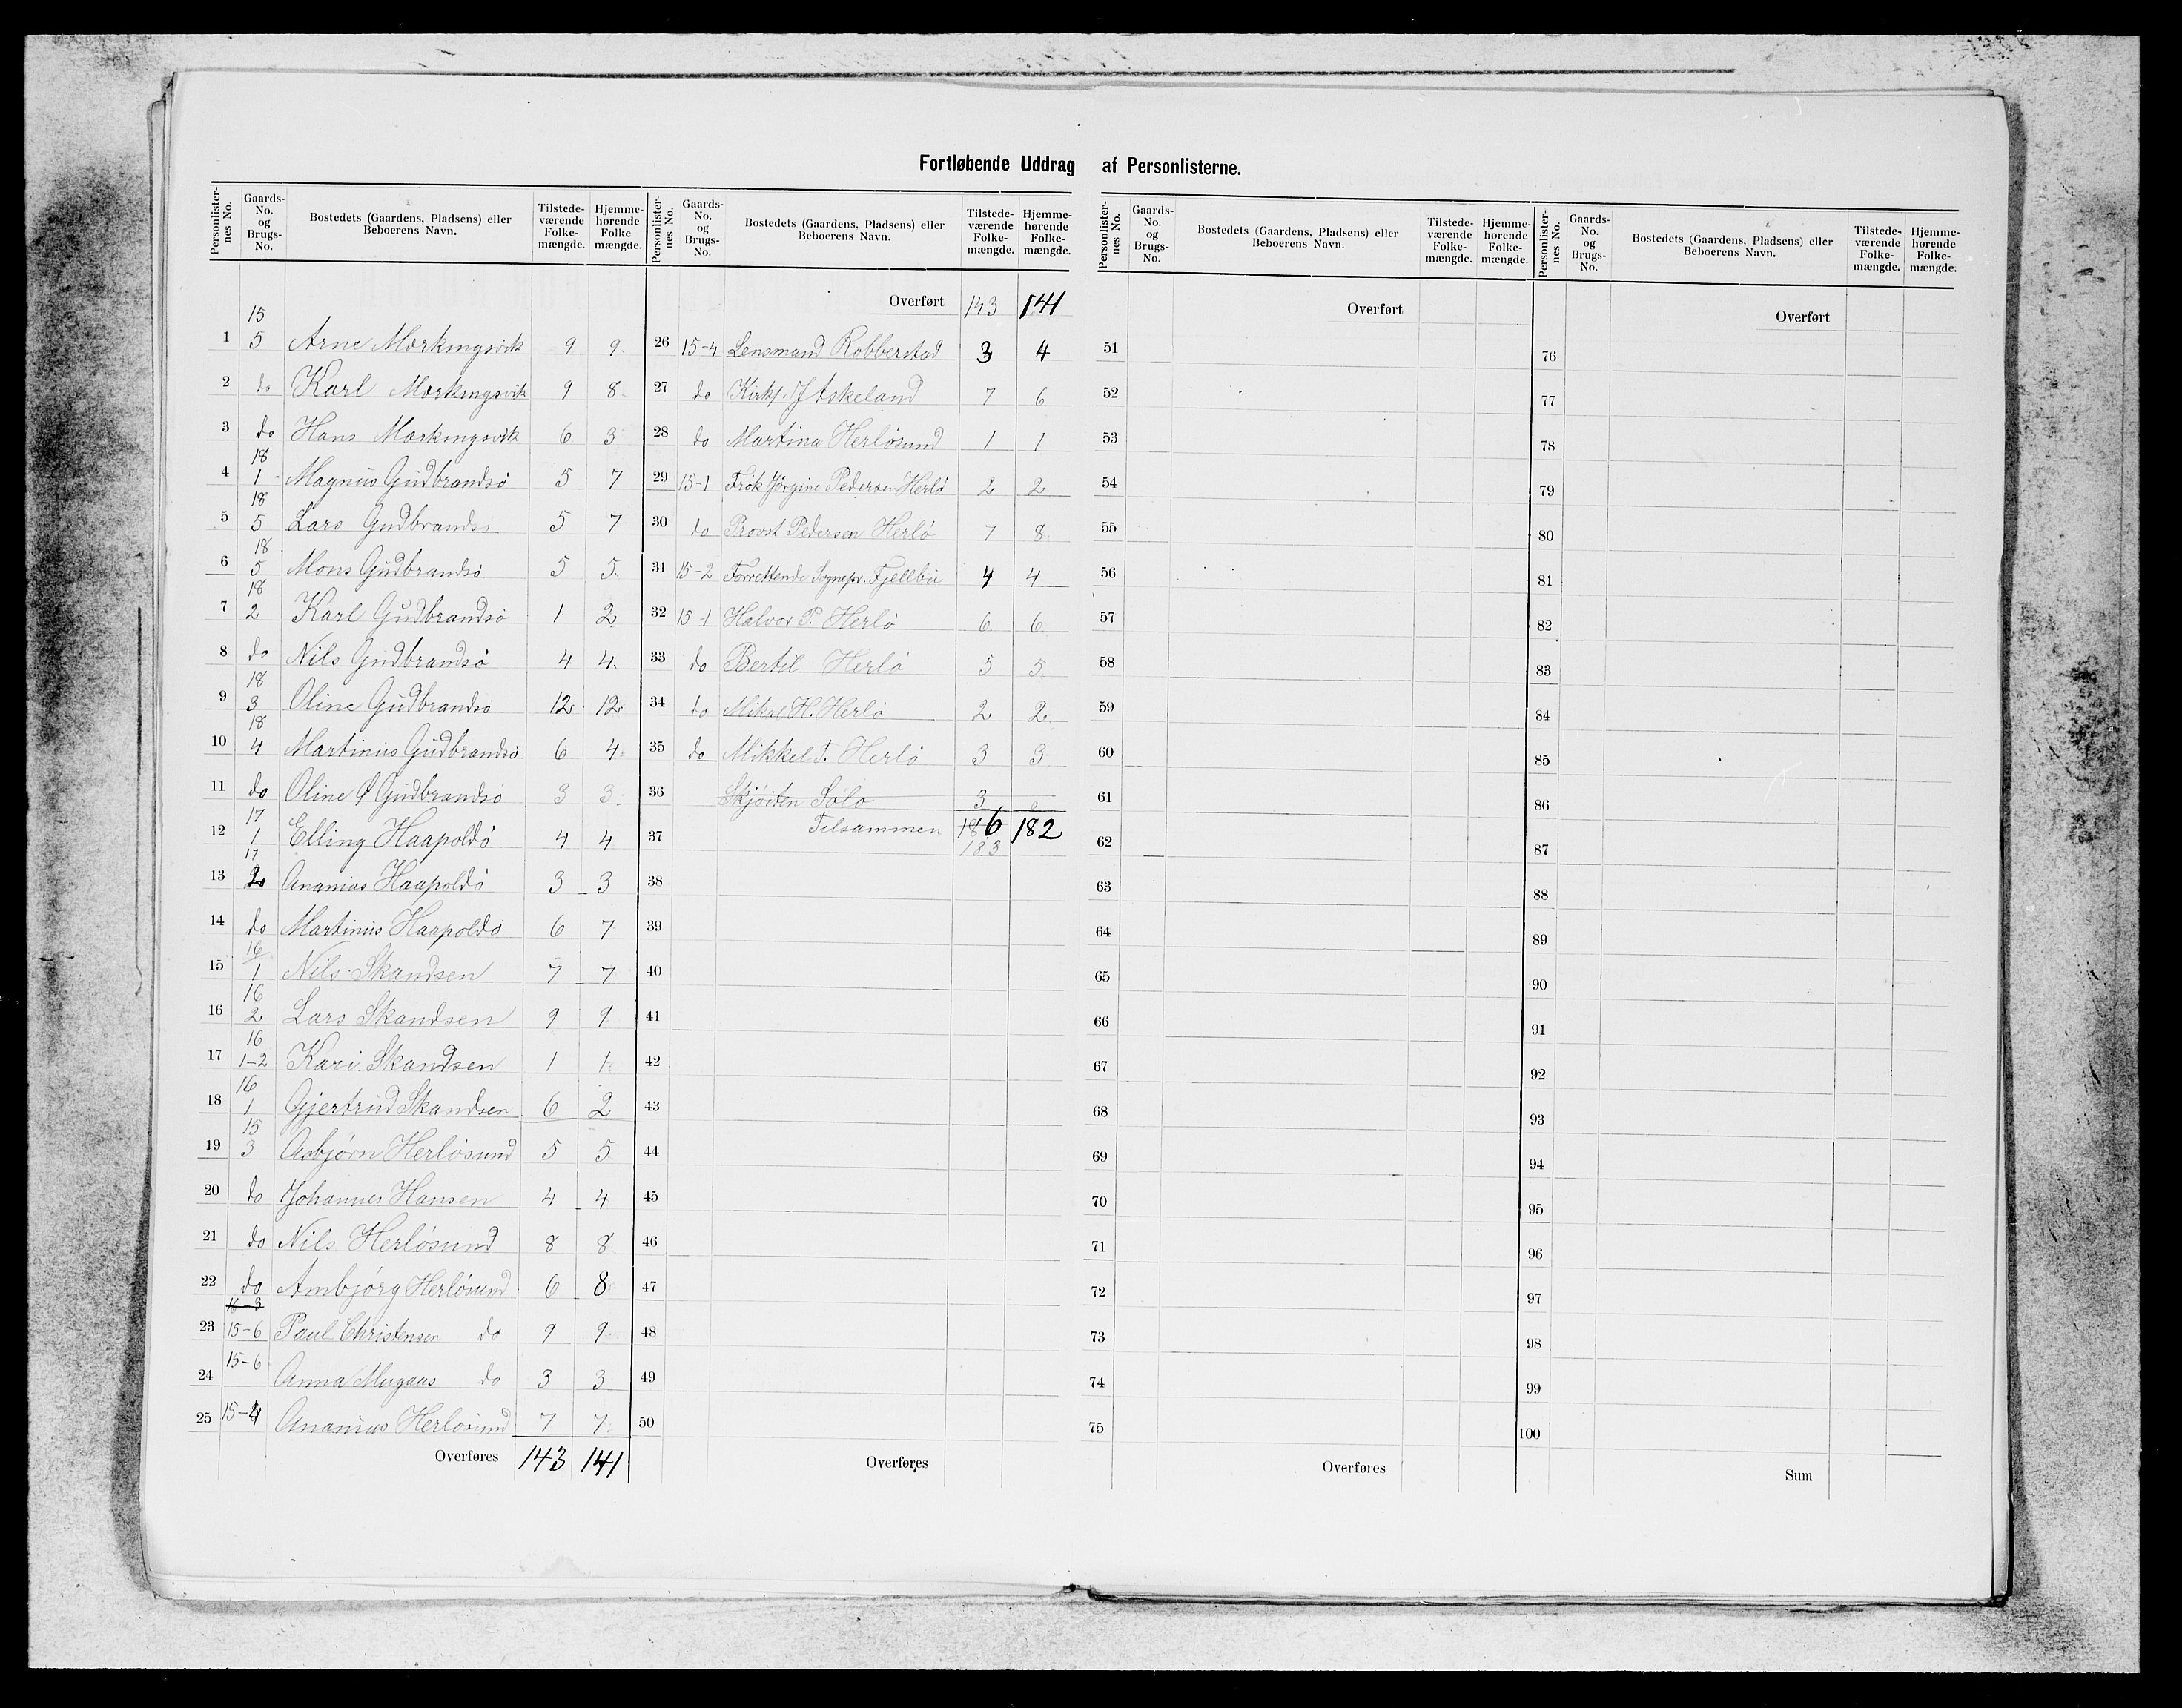 Fortløbende Uddrag af Personlisterne.
Personlister-nes No. Gaards-No. og Brugs-No. Bostedets (Gaardens, Pladsens) eller Beboerens Navn. Tilstede-værende Folke-mængde. Hjemme-hørende Folke mængde.
15
1 5 Arne Mørkingsvik 9 9
2 do Karl Mørkingsvik 9 8
3 do Hans Mørkingsvik 6 3
18
4 1 Magnus Gudbrandsö 5 7
18
5 5 Lars Gudbrandsö 5 7
18
6 5 Mons Gudbrandsö 5 5
18
7 2 Karl Gudbrandsö 1 2
8 do Nils Gudbrandsö 4 4
18
9 3 Oline Gudbrandsö 12 12
18
10 4 Martinus Gudbrandsö 6 4
11 do Oline Ø Gudbrandsö 3 3
17
12 1 Elling Haapoldö 4 4
17
13 2 Ananias Haapoldö 3 3
14 do Martinus Haapoldö 6 7
16
15 1 Nils Skandsen 7 7
16
16 2 Lars Skandsen 9 9
16
17 1-2 Kari Skandsen 1 1
16
18 1 Gjertrud Skandsen 6 2
15
19 3 Asbjörn Herlösund 5 5
20 do Johannes Hansen 4 4
21 do Nils Herlösund 8 8
22 do Ambjörg Herlösund 6 8
16-3
23 15-6 Paul Christensen do 9 9
24 15-6 Anna Mugaas do 3 3
25 15-4 Ananias Herlösund 7 7
Overføres 143 141
Personlister-nes No. Gaards-No. og Brugs-No. Bostedets (Gaardens, Pladsens) eller Beboerens Navn. Tilstede-værende Folke-mængde. Hjemme-hørende Folke-mængde.
Overført 143 141
26 15-4 Lensmand Robberstad 3 4
27 do Kirks. J Askeland 7 6
28 do Martina Herlösund 1 1
29 15-1 Frøk Jörgine Pedersen Herlö 2 2
30 do Provst Pedersen Herlö 7 8
31 15-2 Forrettende Sognepr. Fjellbu 4 4
32 15-1 Halvor P. Herlö 6 6
33 do Bertil Herlö 5 5
34 do Mikal H. Herlö 2 2
35 do Mikkel T. Herlö 3 3
36 Skjöiten Solo 3 0
37 Tilsammen 186 182
183
38
39
40
41
42
43
44
45
46
47
48
49
50
Overføres
Personlister-nes No. Gaards-No. og Brugs-No. Bostedets (Gaardens, Pladsens) eller Beboerens Navn. Tilstede-værende Folke-mængde. Hjemme-hørende Folke-mængde.
Overført
51
52
53
54
55
56
57
58
59
60
61
62
63
64
65
66
67
68
69
70
71
72
73
74
75
Overføres
Personlister-nes No. Gaards-No. og Brugs-No. Bostedets (Gaardens, Pladsens) eller Beboerens Navn. Tilstede-værende Folke-mængde. Hjemme-hørende Folke-mængde.
Overført
76
77
78
79
80
81
82
83
84
85
86
87
88
89
90
91
92
93
94
95
96
97
98
99
100
Sum